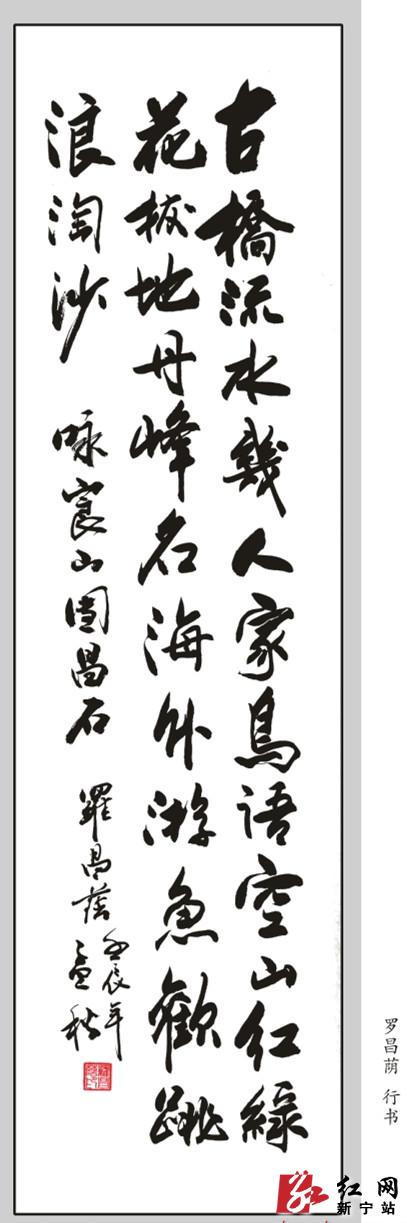 古橋流水幾人家鳥語空山紅綠
花拔地丹峰名海外游魚歡跳
浪淘沙 咏崀山周昌石 羅昌蔭 壬辰年
孟秋
罗昌荫 行书
红网
新宁站